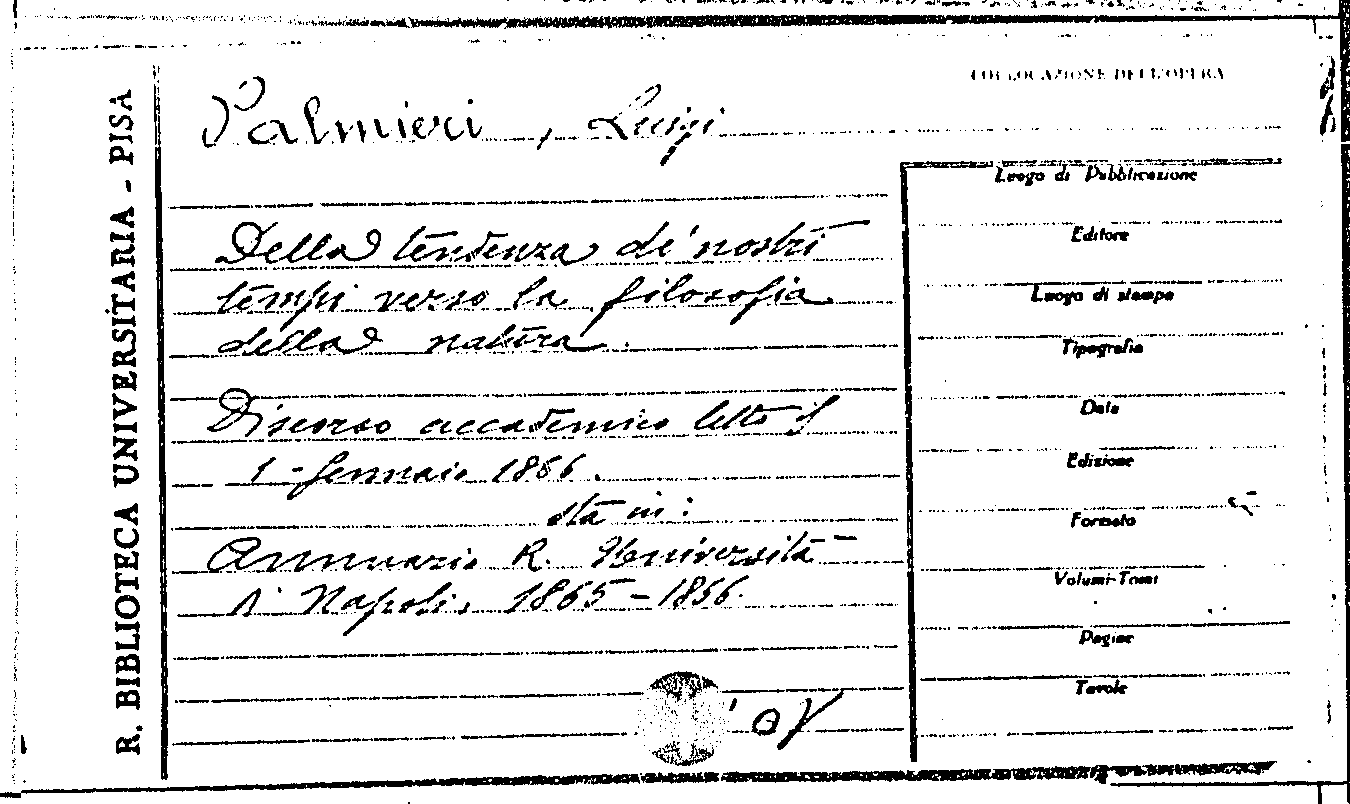 R. BIBLIOTECA UNIVERSITARIA - PISA
COLLOCAZIONE DELL'OPERA
Palmieri, Luigi
Della tendenza de' nostri
tempi verso la filosofia
della natura.
Discorso accademico letto il
1 - Gennaio 1866.
sta in:
Annuario R. Università
di Napoli, 1865-1866.
Luogo di Pubblicazione
Editore
Luogo di stampa
Tipografia
Data
Edizione
Formato
Volumi-Tomi
Pagine
Tavole